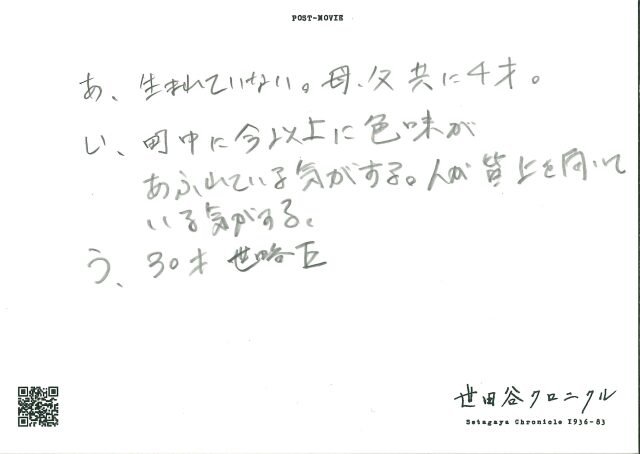 POST-MOVIE
あ、生まれていない。母、父共に4才。
い、町中に今以上に色味が
あふれている気がする。人が皆上を向いて
いる気がする。
う、30才 世略区
世田谷クロニクル
Setagaya Chronicle 1936-83